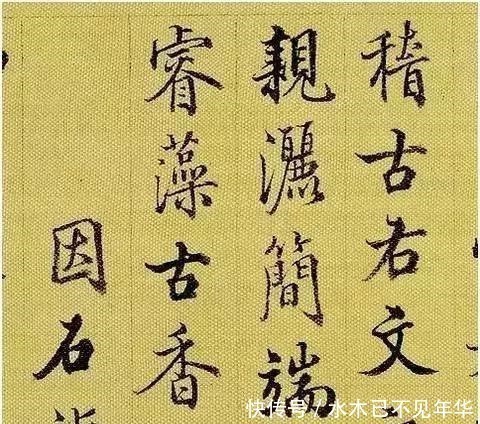 稽古右文
親灑簡端
睿藻古香
因石
快传号/水木已不见年华